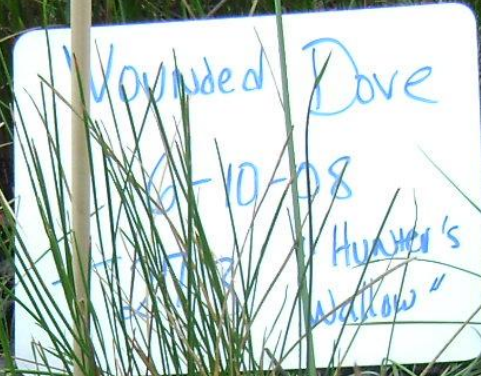 Wounded Dove
6-10-08
Hunter's
Wallow"